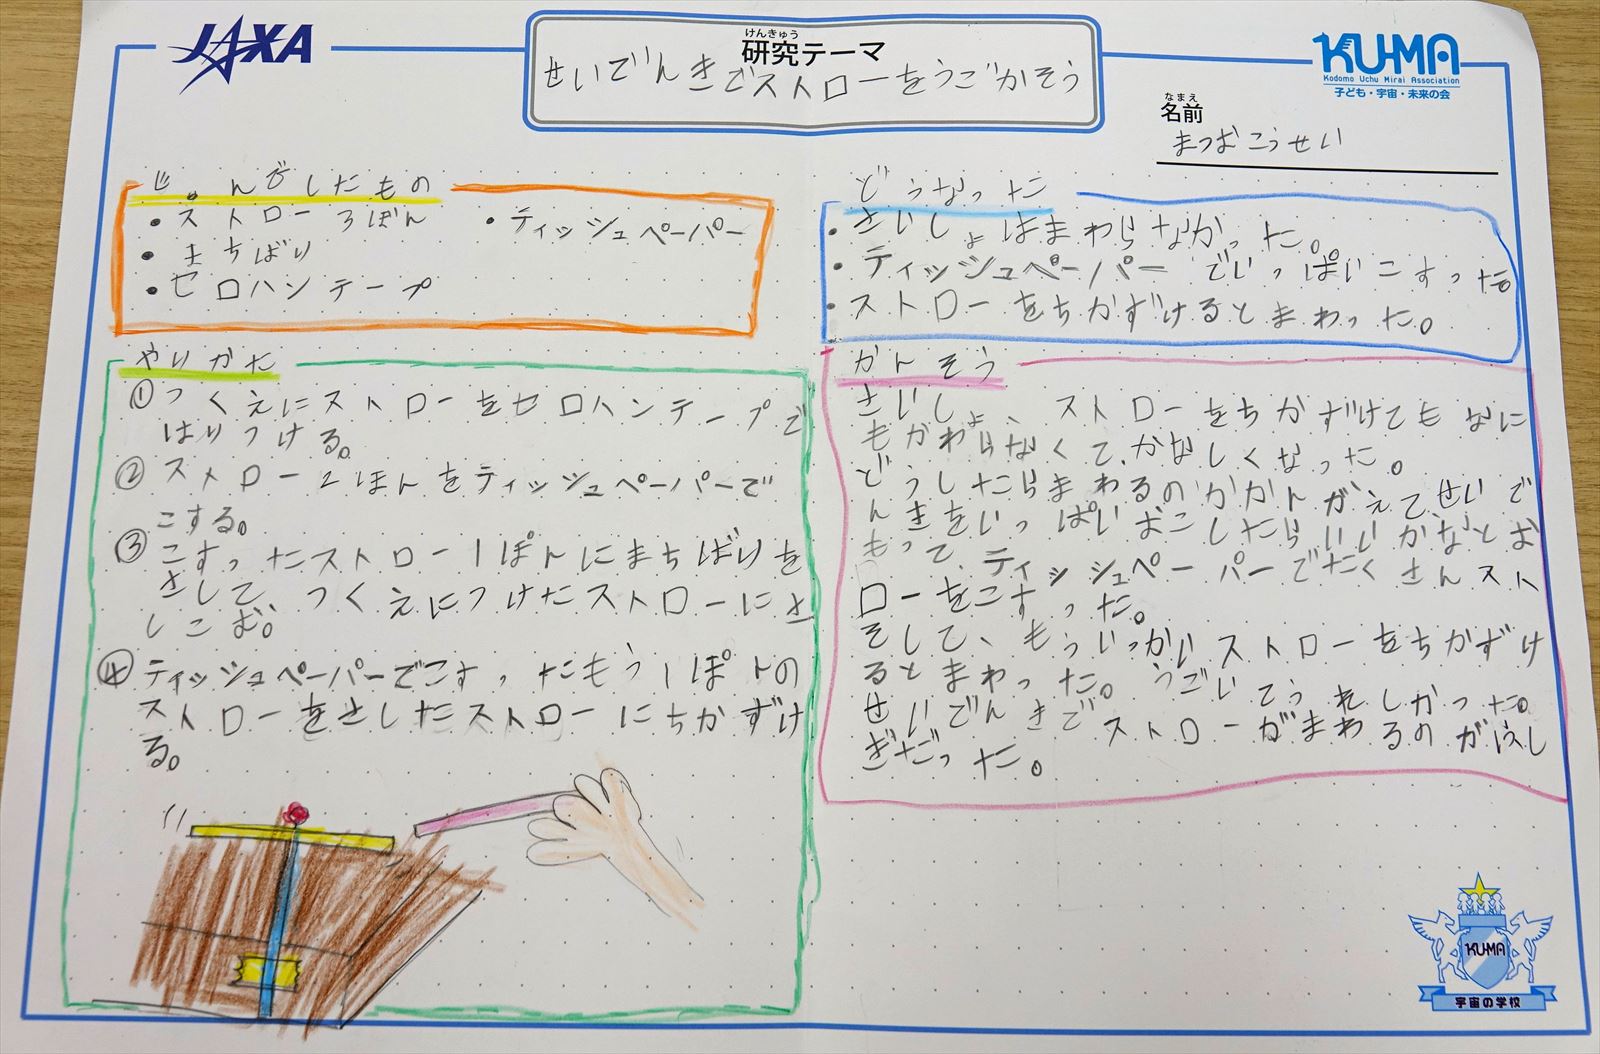 JAXA
けんきゅう
研究テーマ
せいでんきでストローをうごかそう
KU-MA
Kodomo Uchu Mirai Association
子ども・宇宙・未来の会
なまえ
名前
まつおこうせい
じゅんびしたもの
・ストロー3ぼん
・まちばり
・セロハンテープ
・ティッシュペーパー
やりかた
①つくえにストローをセロハンテープで
はりつける。
②ストロー2ほんをティッシュペーパーで
こする。
③こすったストロー1ぽんにまちばりを
さして、つくえにつけたストローにさ
しこむ。
④ティッシュペーパーでこすったもう1ぽんの
ストローをさしたストローにちかずけ
る。
どうなった
・さいしょはまわらなかった。
・ティッシュペーパーでいっぱいこすった。
・ストローをちかずけるとまわった。
かんそう
さいしょ、ストローをちかずけてもなに
もかわらなくて、かなしくなった。
どうしたらまわるのかかんがえてせいで
んきをいっぱいおこしたらいいかなとお
もって、ティッシュペーパーでたくさんスト
ローをこすった。
そして、もういっかいストローをちかずけ
るとまわった。うごいてうれしかった。
せいでんきでストローがまわるのがふし
ぎだった。
KU-MA
宇宙の学校